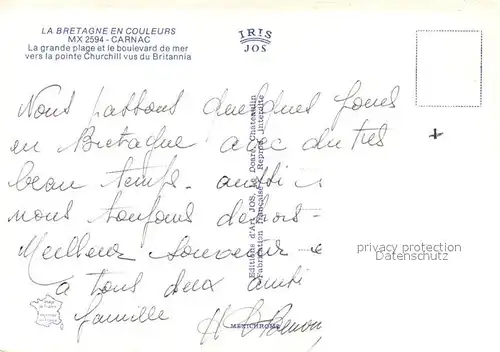 LA BRETAGNE EN COULEURS
MX 2594 - CARNAC
La grande plage et le boulevard de mer
vers la pointe Churchill vus du Britannia
IRIS
JOS
Nous passons quelques jours
en Bretagne avec du très
beau temps - aussi
nous toujours dehors -
Meilleur souvenir
a tous deux ainsi
famille
Editions d'Art JOS, Le Doaré, Chateaulin
Fabrication Française - Reprod. Interdite
MEXICHROME
privacy protection
Datenschutz